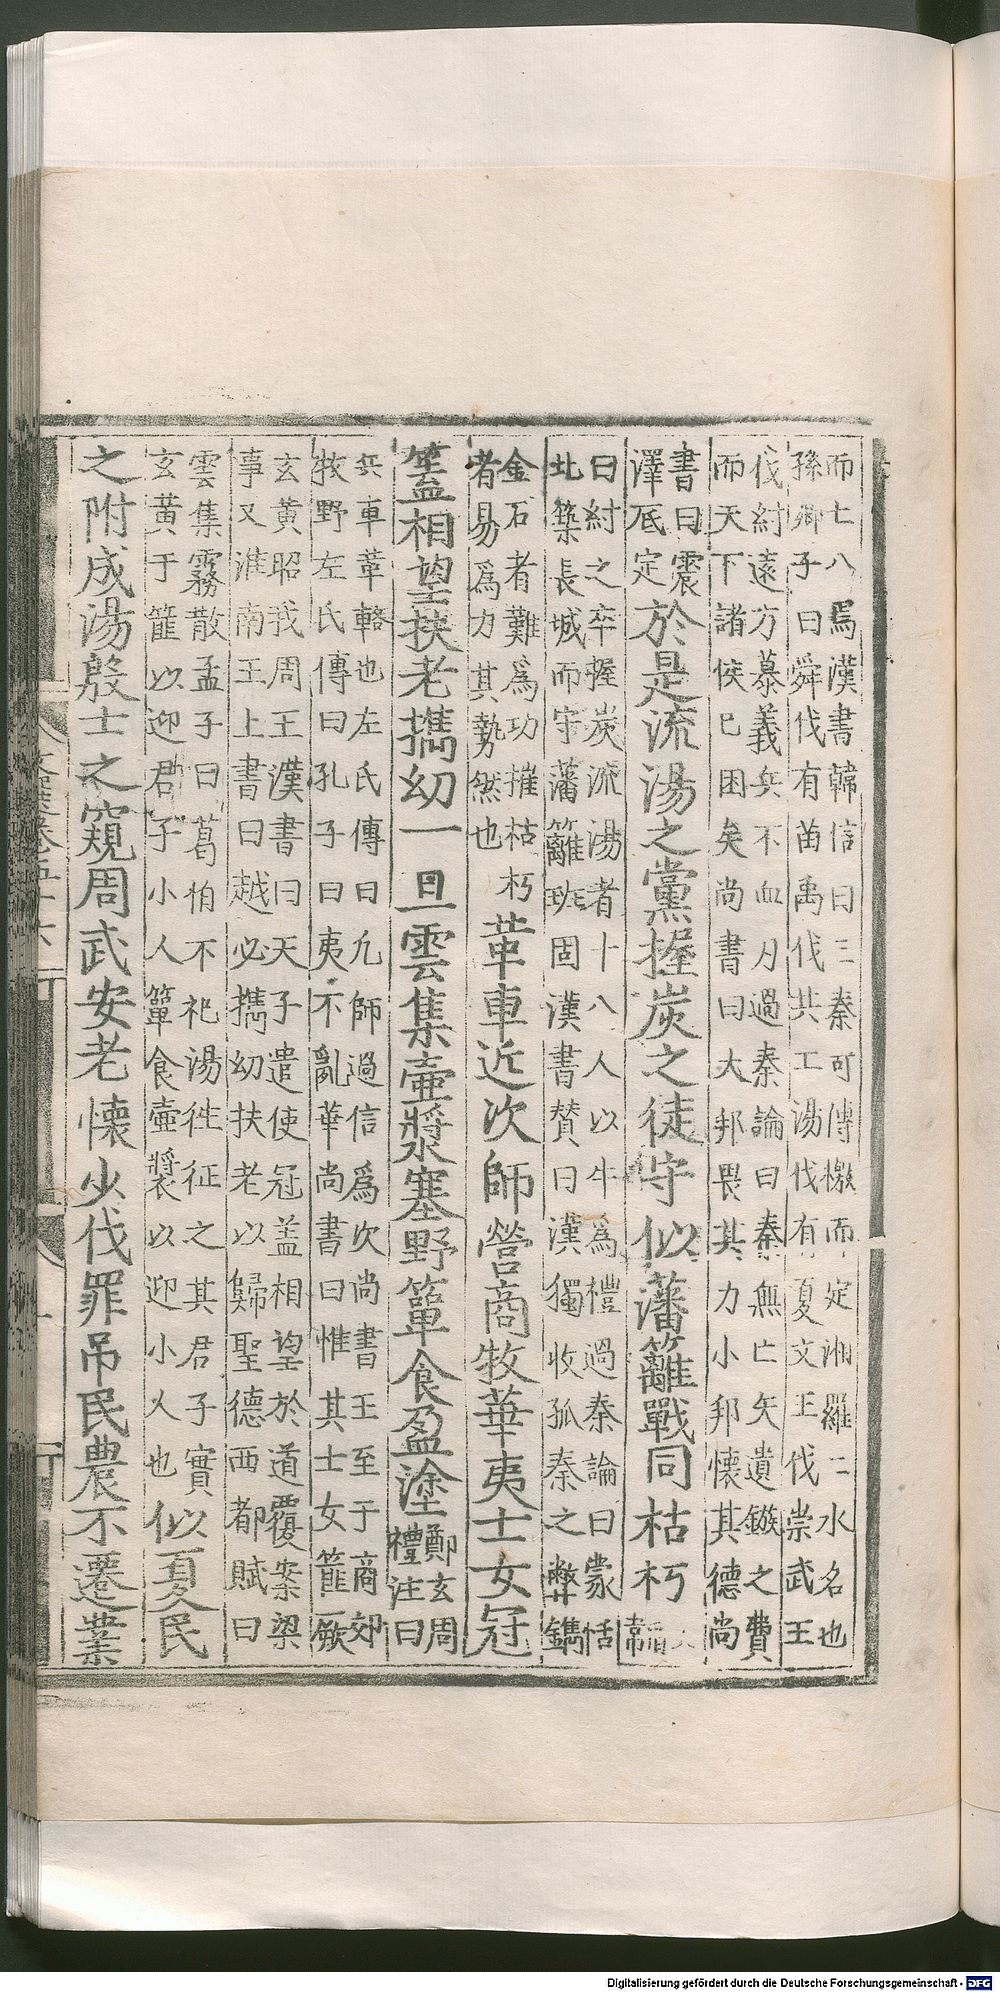 而七八焉漢書韓信曰三秦可傳檄而定湘羅二水名也
孫卿子曰舜伐有苗禹伐共工湯伐有夏文王伐崇武王
伐紂遠方慕義兵不血刃過秦論曰秦無亡矢遺鏃之費
而天下諸侯已困矣尚書曰大邦畏其力小邦懷其德尚
書曰震澤厎定於是流湯之黨握炭之徒守似藩籬戰同枯朽
曰紂之卒握炭流湯者十八人以牛為禮過秦論曰蒙恬
北築長城而守藩籬班固漢書贊曰漢獨收孤秦之弊鐫
金石者難為功摧枯朽者易為力其勢然也革車近次師營商牧華夷士女冠
蓋相望扶老攜幼一旦雲集壺漿塞野簞食盈塗鄭玄周禮注曰
兵車革輅也左氏傳曰凡師過信為次尚書王至于商郊
牧野左氏傳曰孔子曰夷不亂華尚書曰惟其士女篚厥
玄黃昭我周王漢書曰天子遣使冠盖相望於道覆案梁
事又淮南王上書曰越必攜幼扶老以歸聖德西都賦曰
雲集霧散孟子曰葛伯不祀湯往征之其君子實
玄黃于篚以迎君子小人簞食壺漿以迎小人也似夏民
之附成湯殷士之窺周武安老懷少伐罪吊民農不遷業
文選卷五十六
Digitalisierung gefördert durch die Deutsche Forschungsgemeinschaft - DFG